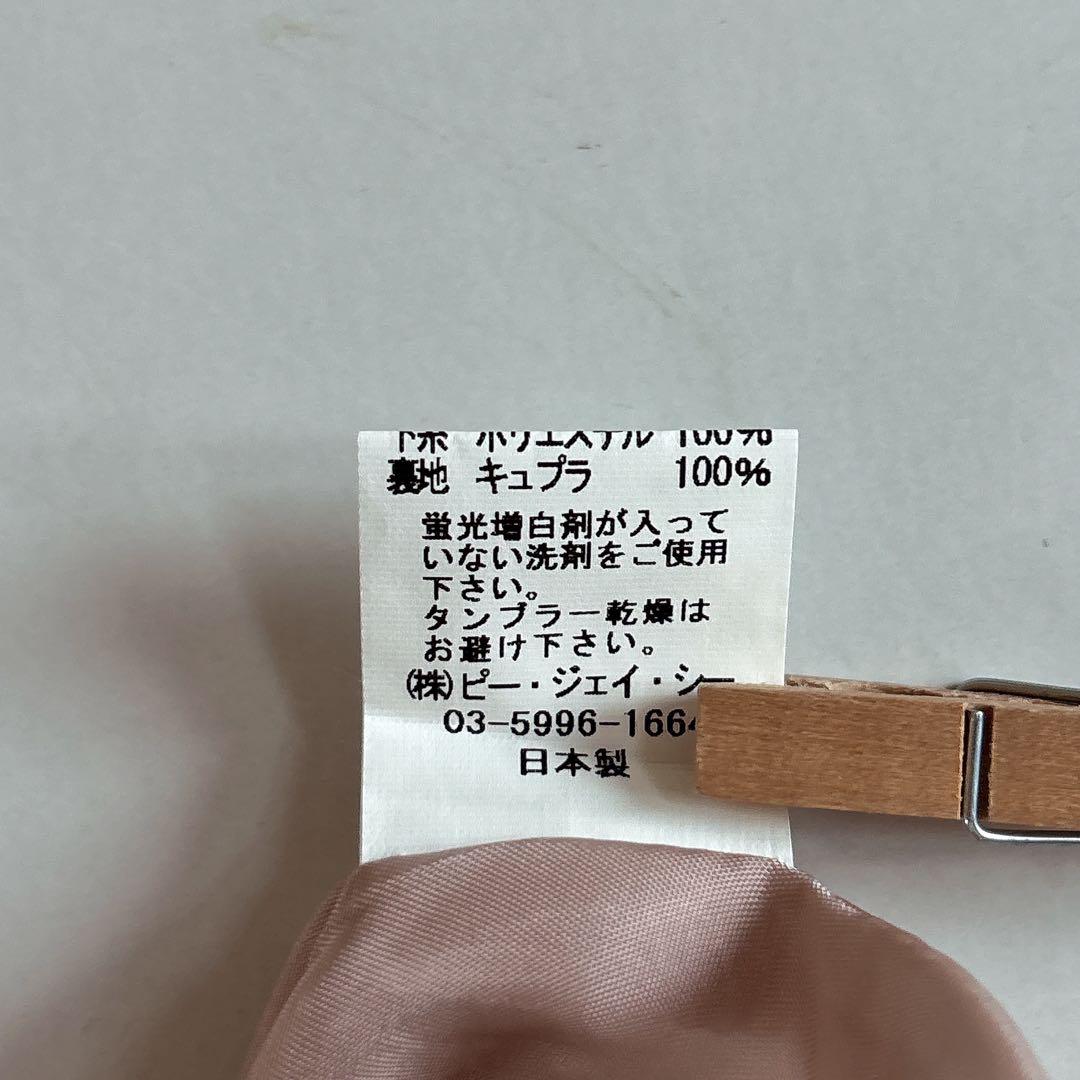 下糸 ポリエステル 100%
裏地 キュプラ 100%
蛍光増白剤が入って
いない洗剤をご使用
下さい。
タンブラー乾燥は
お避け下さい。
(株)ピー・ジェイ・シー
03-5996-1664
日本製